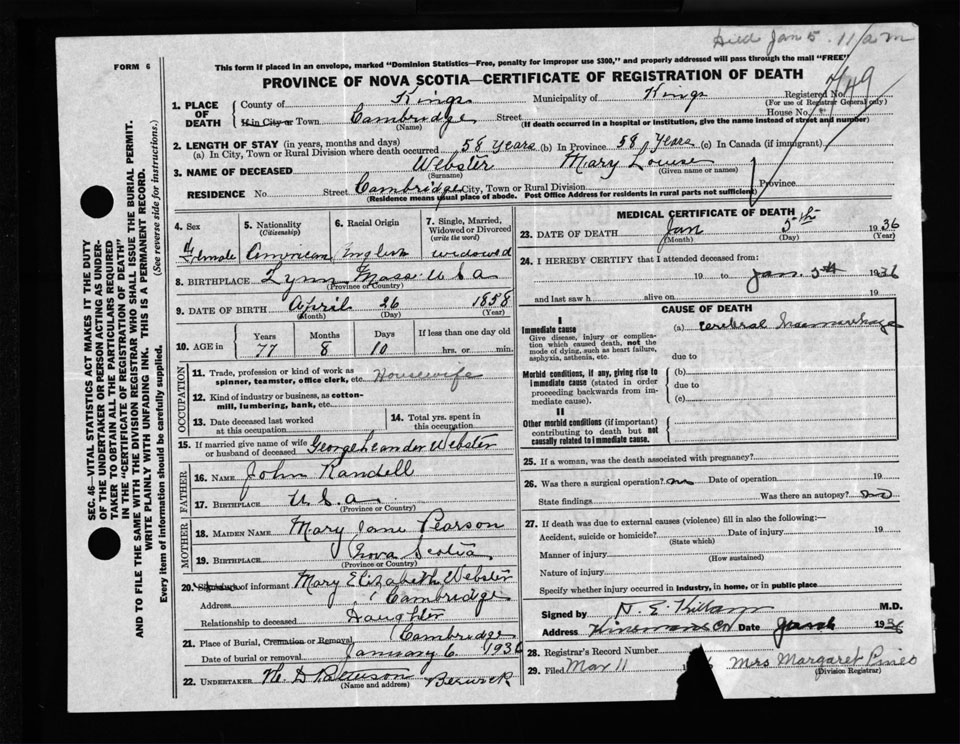 Died Jan 5. 11/a m
FORM 6
This form if placed in an envelope, marked "Dominion Statistics—Free, penalty for improper use $300," and properly addressed will pass through the mail "FREE"
PROVINCE OF NOVA SCOTIA—CERTIFICATE OF REGISTRATION OF DEATH
1. PLACE OF DEATH
County of Kings Municipality of Kings Registered No.
749
(For use of Registrar General only)
H in City or Town Cambridge Street House No.
(Name) (If death occurred in a hospital or institution, give the name instead of street and number)
2. LENGTH OF STAY (in years, months and days)
(a) In City, Town or Rural Division where death occurred 58 years (b) In Province 58 years (c) In Canada (if immigrant)
3. NAME OF DECEASED Webster Mary Louise
(Surname) (Given name or names)
RESIDENCE No. Street Cambridge City, Town or Rural Division Province
(Residence means usual place of abode. Post Office Address for residents in rural parts not sufficient)
4. Sex
Female
5. Nationality (Citizenship)
American
6. Racial Origin
English
7. Single, Married, Widowed or Divorced (write the word)
widowed
8. BIRTHPLACE Lynn Mass. U S A
(Province or Country)
9. DATE OF BIRTH April 26 1858
(Month) (Day) (Year)
10. AGE in
Years Months Days If less than one day old
77 8 10 hrs. or min.
OCCUPATION
11. Trade, profession or kind of work as spinner, teamster, office clerk, etc. Housewife
12. Kind of industry or business, as cotton-mill, lumbering, bank, etc.
13. Date deceased last worked at this occupation
14. Total yrs. spent in this occupation
15. If married give name of wife or husband of deceased George Leander Webster
FATHER
16. NAME John Randell
17. BIRTHPLACE U. S. A.
(Province or Country)
MOTHER
18. MAIDEN NAME Mary Jane Pearson
19. BIRTHPLACE Nova Scotia
(Province or Country)
20. Signature of informant Mary Elizabeth Webster
Address Cambridge
Relationship to deceased Daughter
21. Place of Burial, Cremation or Removal Cambridge
Date of burial or removal January 6. 1936
22. UNDERTAKER Patterson Berwick
(Name and address)
MEDICAL CERTIFICATE OF DEATH
23. DATE OF DEATH Jan 5th 1936
(Month) (Day) (Year)
24. I HEREBY CERTIFY that I attended deceased from:
19 to Jan. 5th 1936
and last saw h alive on 19
CAUSE OF DEATH
I
Immediate cause (a) Cerebral Haemorrhage
Give disease, injury or complication which caused death, not the mode of dying, such as heart failure, asphyxia, asthenia, etc.
due to
Morbid conditions, if any, giving rise to immediate cause (stated in order proceeding backwards from immediate cause).
(b)
due to
(c)
II
Other morbid conditions (if important) contributing to death but not causally related to immediate cause.
25. If a woman, was the death associated with pregnancy?
26. Was there a surgical operation? no Date of operation 19
State findings Was there an autopsy? no
27. If death was due to external causes (violence) fill in also the following:—
Accident, suicide or homicide? Date of injury 19
(State which)
Manner of injury
(How sustained)
Nature of injury
Specify whether injury occurred in industry, in home, or in public place
Signed by N. E. Killam M.D.
Address Date 1936
28. Registrar's Record Number
29. Filed Mar 11 Mrs Margaret Pineo
(Division Registrar)
SEC. 46—VITAL STATISTICS ACT MAKES IT THE DUTY
OF THE UNDERTAKER OR PERSON ACTING AS UNDER-
TAKER TO OBTAIN ALL THE PARTICULARS REQUIRED
IN THE "CERTIFICATE OF REGISTRATION OF DEATH"
AND TO FILE THE SAME WITH THE DIVISION REGISTRAR WHO SHALL ISSUE THE BURIAL PERMIT.
WRITE PLAINLY WITH UNFADING INK. THIS IS A PERMANENT RECORD.
Every item of information should be carefully supplied. (See reverse side for instructions.)